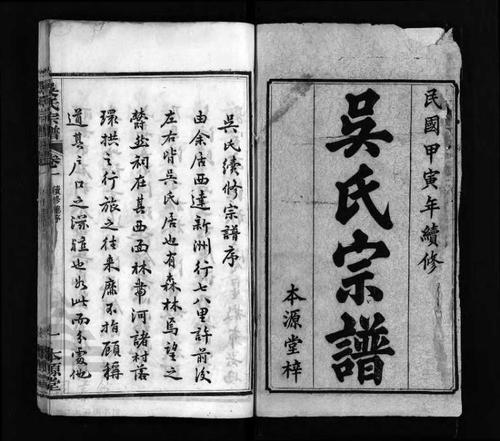 民國甲寅年續修
吳氏宗譜
本源堂梓
吳氏續修宗譜序
由余居西達新洲行七八里許前後
左右皆吳氏居也有森林焉望之
鬱然祠在其西面林帶河諸村落
環拱之行旅之往來靡不指顧稱
道其戶口之深 也 此而分處他
吳氏宗譜
卷一
續修譜序
一
本源堂